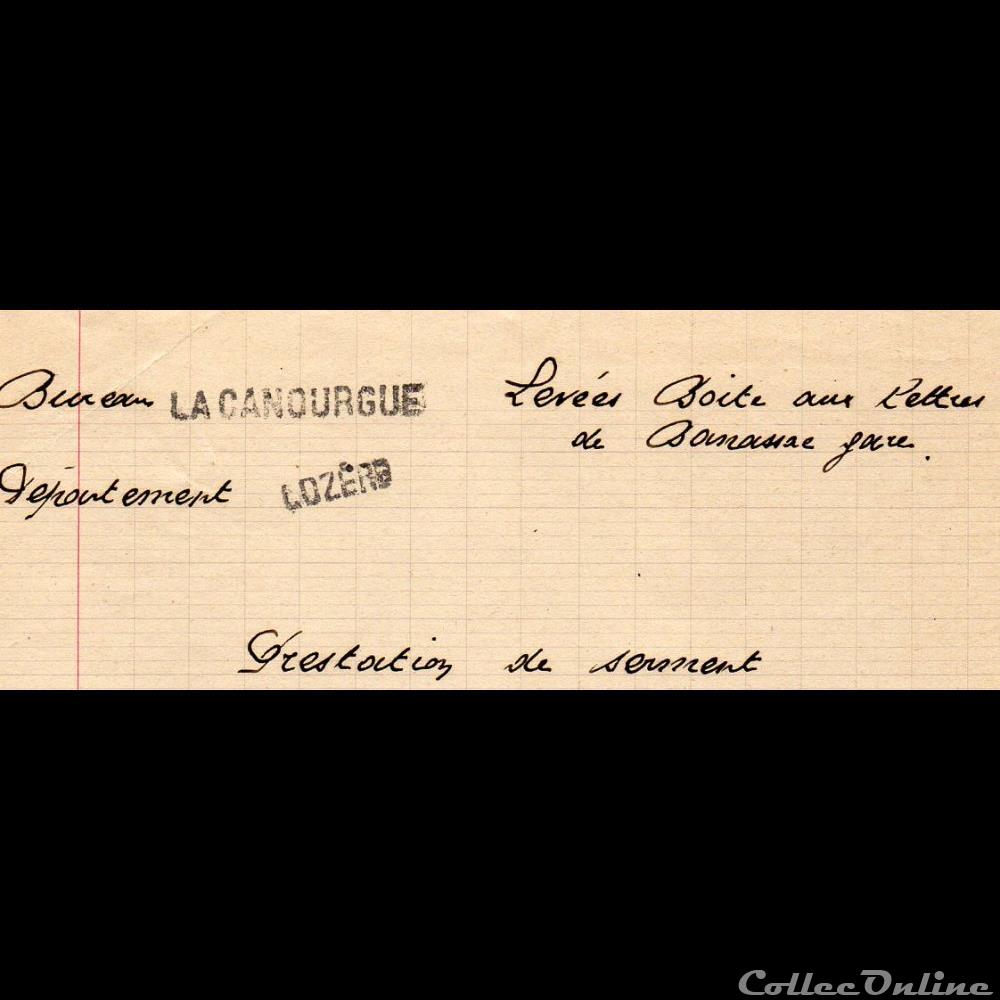 Bureau LA CANOURGUE Levées Boite aux Lettres
de Banassac gare.
Département LOZÈRE
Prestation de serment
CollecOnline